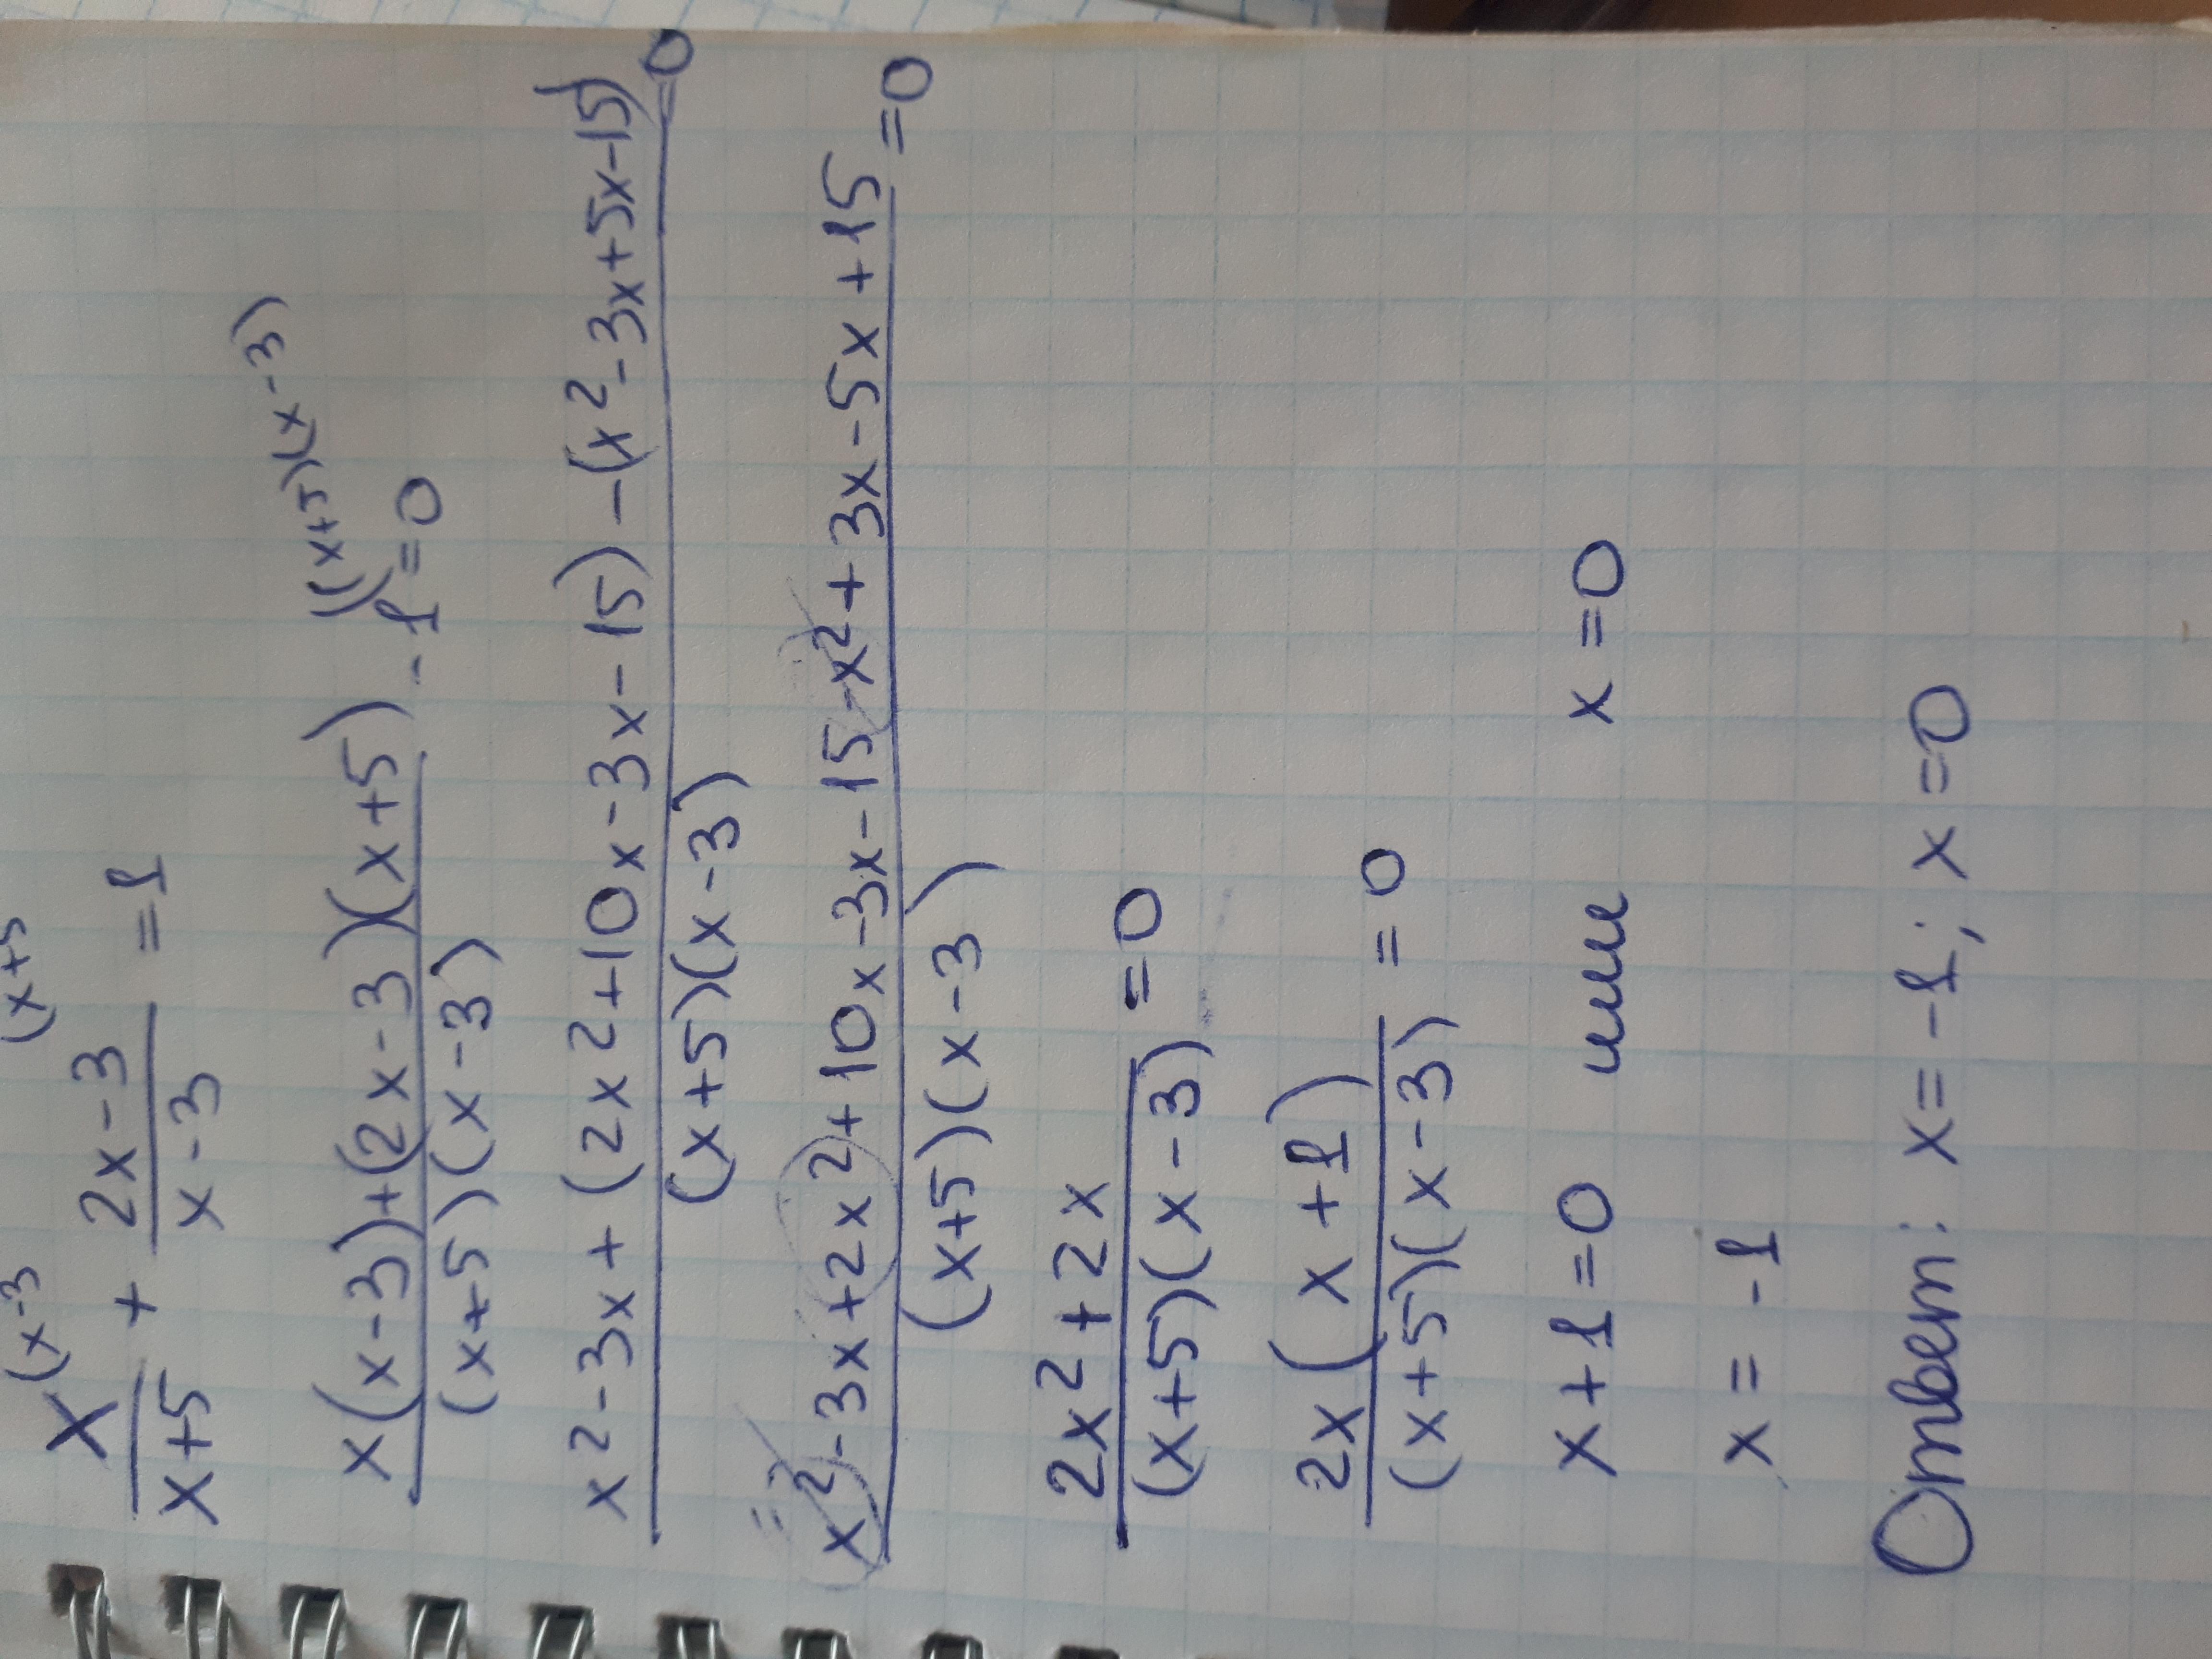 (x-3 (x+5
x/(x+5) + (2x-3)/(x-3) = 1
((x+5)(x-3)
(x(x-3)+(2x-3)(x+5))/((x+5)(x-3)) - 1 = 0
(x²-3x+(2x²+10x-3x-15)-(x²-3x+5x-15))/((x+5)(x-3)) = 0
(x²-3x+2x²+10x-3x-15-x²+3x-5x+15)/((x+5)(x-3)) = 0
(2x²+2x)/((x+5)(x-3)) = 0
(2x(x+1))/((x+5)(x-3)) = 0
x+1=0 или x=0
x = -1
Ответ: x=-1; x=0